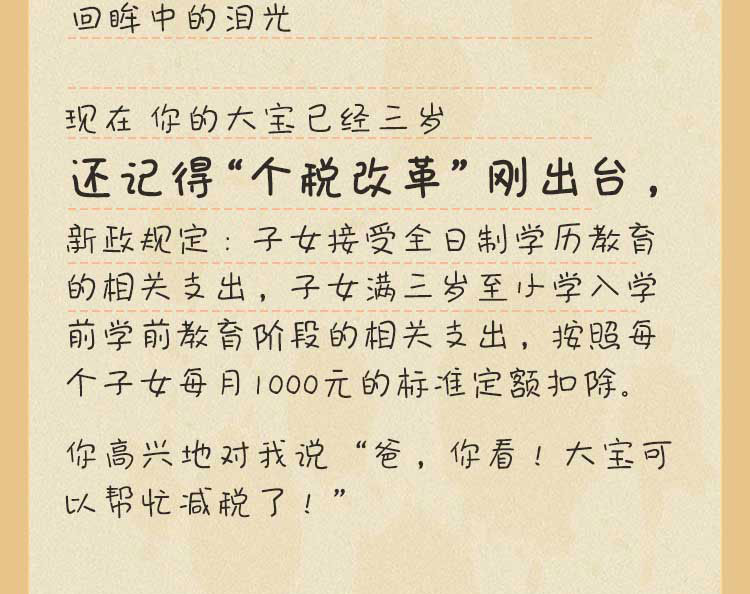 回眸中的泪光
现在 你的大宝已经三岁
还记得“个税改革”刚出台，
新政规定：子女接受全日制学历教育
的相关支出，子女满三岁至小学入学
前学前教育阶段的相关支出，按照每
个子女每月1000元的标准定额扣除。
你高兴地对我说“爸，你看！大宝可
以帮忙减税了！”